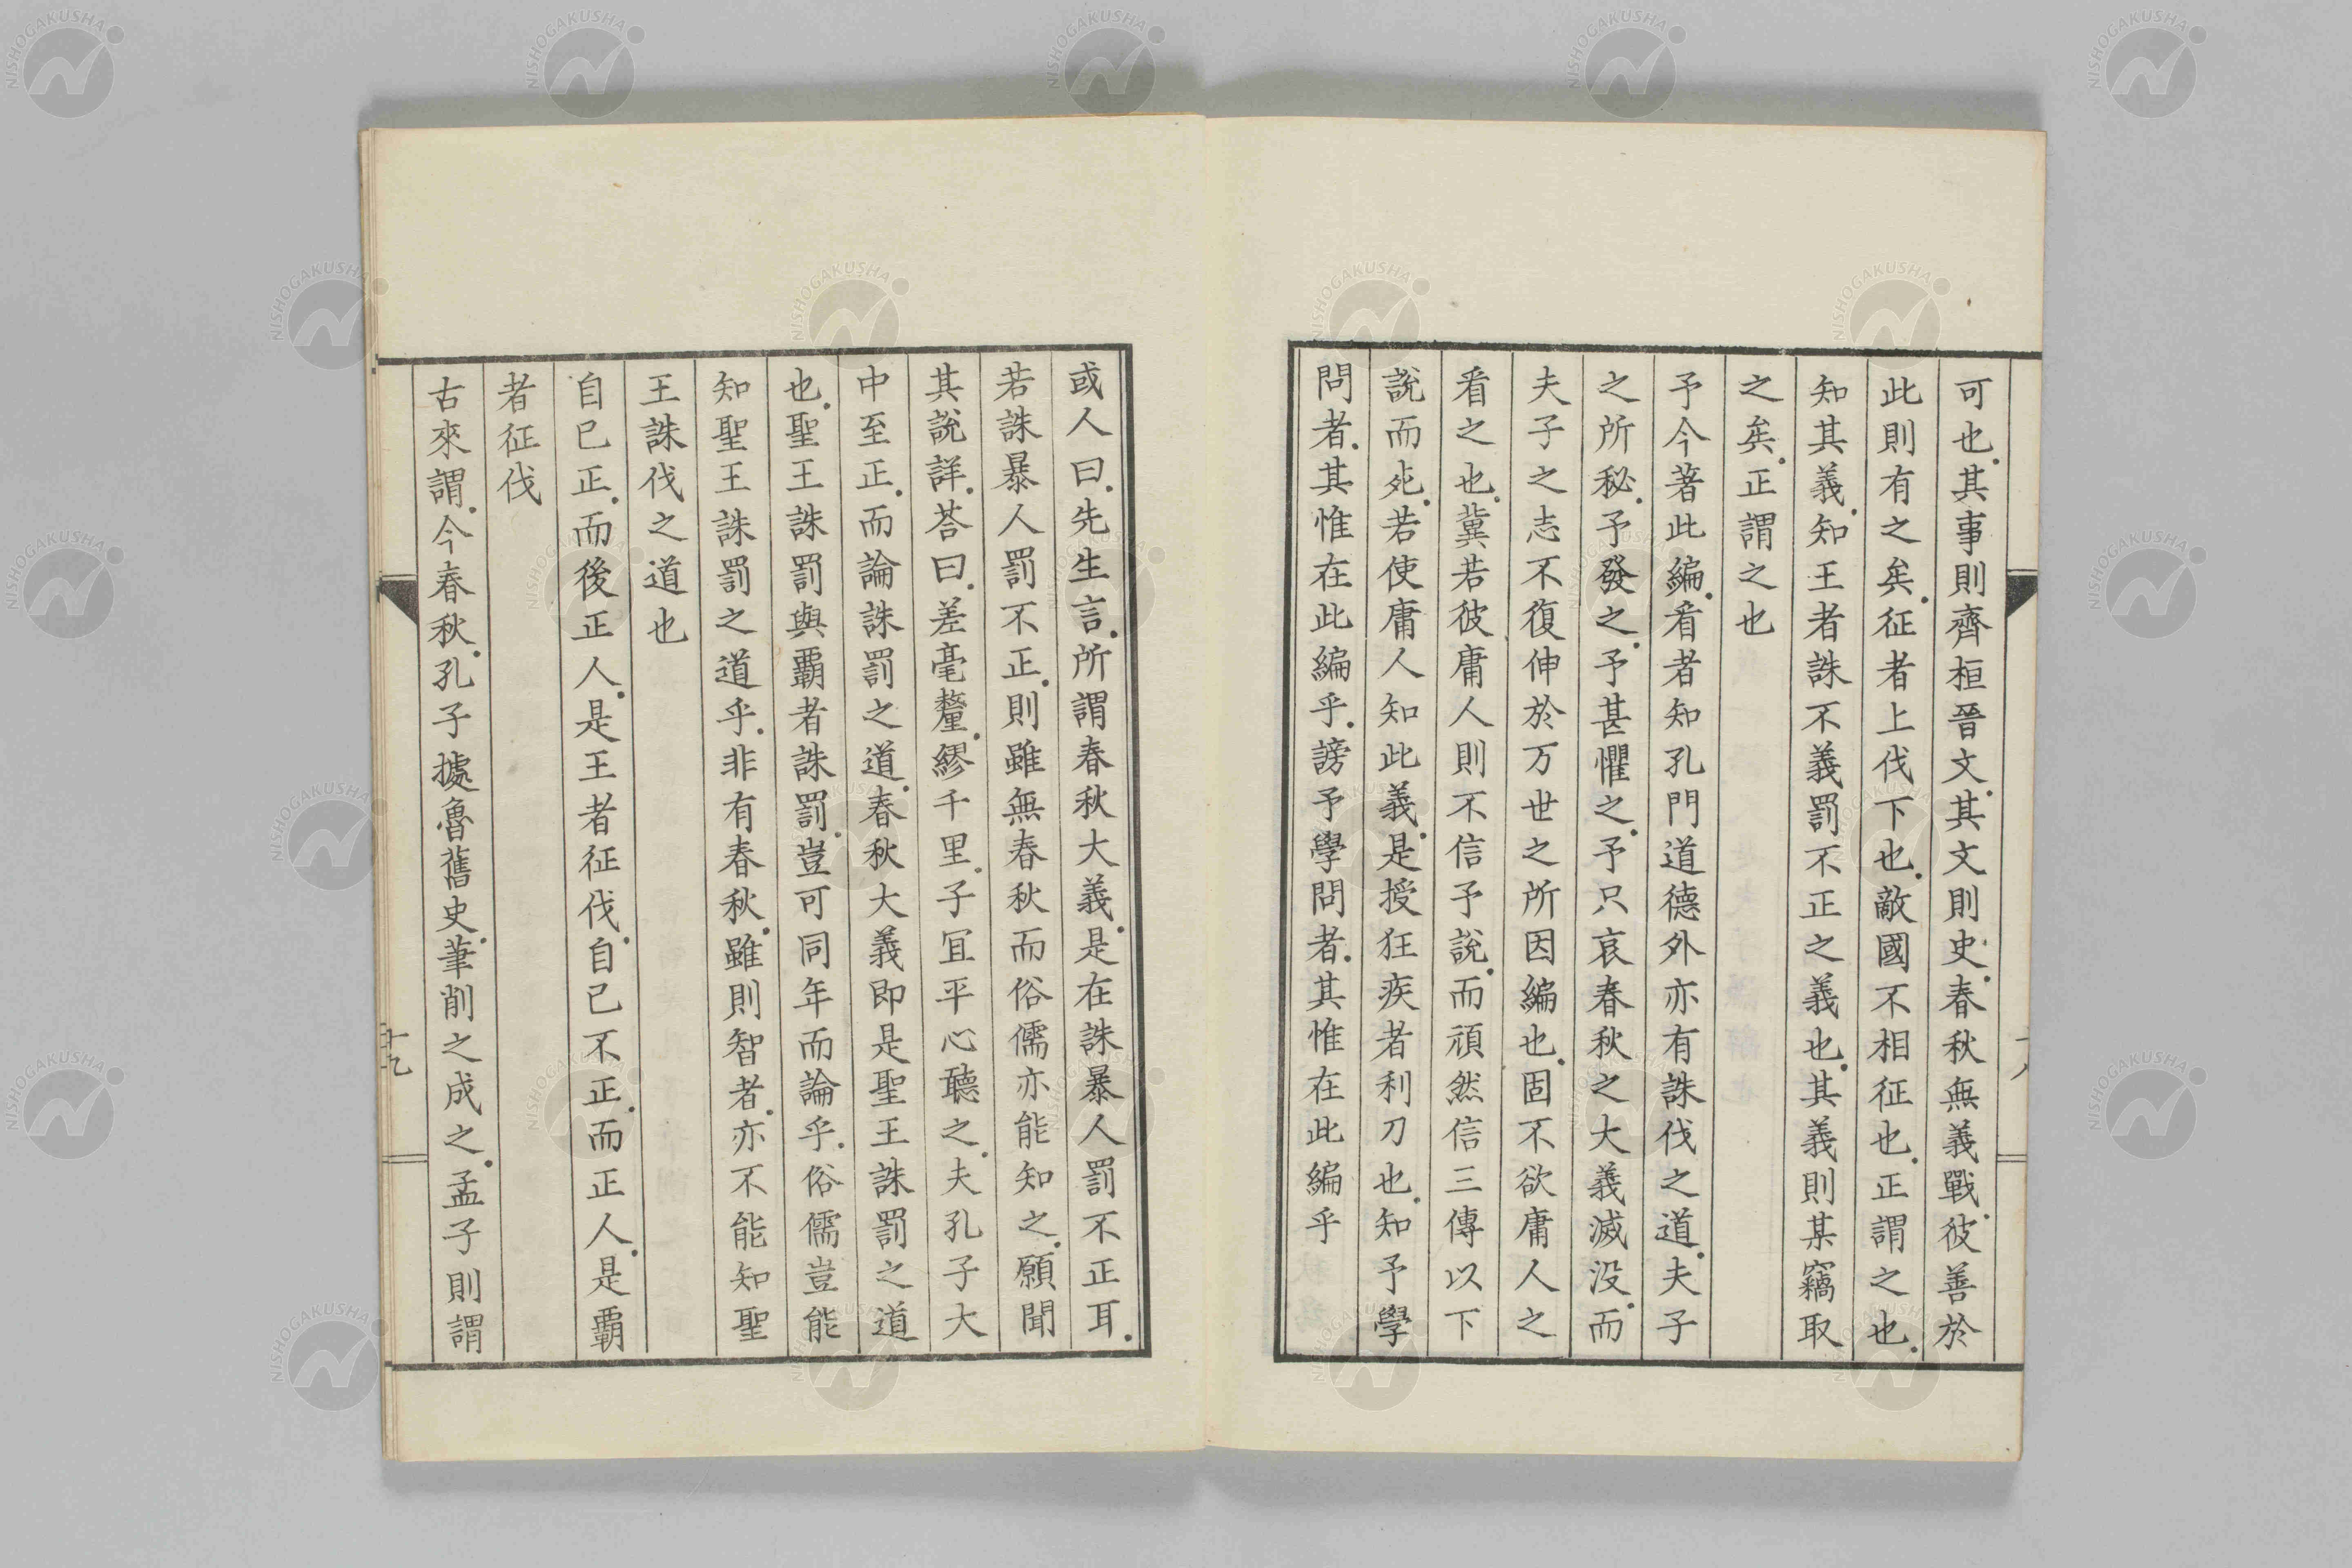 可也。其事則齊桓晉文。其文則史。春秋無義戰。彼善於
此則有之矣。征者上伐下也。敵國不相征也。正謂之也。
知其義。知王者誅不義罰不正之義也。其義則某竊取
之矣。正謂之也
予今著此編。看者知孔門道德外亦有誅伐之道。夫子
之所秘。予發之。予甚懼之。予只哀春秋之大義滅没。而
夫子之志不復伸於万世之所因編也。固不欲庸人之
看之也。冀若彼庸人則不信予說。而頑然信三傳以下
說而死。若使庸人知此義。是授狂疾者利刀也。知予學
問者。其惟在此編乎。謗予學問者。其惟在此編乎
或人曰。先生言。所謂春秋大義。是在誅暴人罰不正耳。
若誅暴人罰不正。則雖無春秋而俗儒亦能知之。願聞
其說詳。荅曰。差毫釐。繆千里。子冝平心聽之。夫孔子大
中至正。而論誅罰之道。春秋大義即是聖王誅罰之道
也。聖王誅罰與覇者誅罰。豈可同年而論乎。俗儒豈能
知聖王誅罰之道乎。非有春秋。雖則智者。亦不能知聖
王誅伐之道也
自已正。而後正人。是王者征伐。自己不正。而正人。是覇
者征伐
古來謂。今春秋。孔子據魯舊史。筆削之成之。孟子則謂
十九
NISHOGAKUSHA